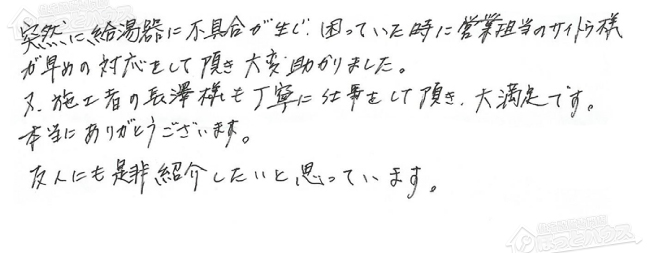 突然に給湯器に不具合が生じ、困っていた時に営業担当のサイトウ様
が早めの対応をして頂き大変助かりました。
又、施工者の長澤様も丁寧に仕事をして頂き、大満足です。
本当にありがとうございます。
友人にも是非紹介したいと思っています。